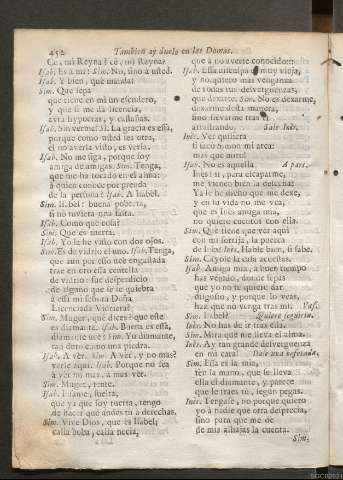 452 Tambien ay duelo en las Damas.
Ce, mi Reyna! cè, mi Reyna?
Isab. Es à mi? Sim. No, sino à usted.
Isab. Y bien, què manda?
Sim. Que sepa
que tiene en mi un escudero,
y que si me dà licencia,
avrà hypocràs, y castañas.
Isab. Sin verme? Si. La gracia es essa,
porque como usted sea otra,
el no averla visto, es verla.
Isab. No me siga, porque soy
amiga de amigas. Sim. Tenga,
que me ha tocado en el alma:
à quien conoce por prenda
de la persona? Isab. A Isabel.
Sim. Isabel? buena pobreta,
si no tuviera una falta.
Isab. Como què cosa?
Sim. Que es tuerta.
Isab. Yo la he visto con dos ojos.
Sim. Es de vidrio el uno. Isab. Tenga,
que aun por esso uñe engastada
trae en oro essa centella
de vidrio: fue desperdicio
de alguno que se le quiebra
à essa mi señora Doña
Licenciada Vidriera?
Sim. Muger, què dices? que este
es diamante. Isab. Buena es essa,
diamante uè? Sim. Y un diamante,
tan duro como una piedra.
Isab. A vèr. Sim. A vèr, y no mas?
verle aqui. Isab. Porque no sea
à vèr no mas, à mas vèr.
Sim. Muger, tente.
Isab. Infame, suelta,
que ya que soy tuerta, tengo
de hacer que andes tu à derechas.
Sim. Vive Dios, que es Isabel;
calla boba, calla necia,
que à no averte conocido
Isab. Essa disculpa es muy vieja,
y no quiero mas venganza
de todas tus desverguenzas,
que dexarte. Sim. No es dexarme,
dexarme desta manera,
sino llevarme tras ti
arrastrando. Sale Inès.
Inès. Vèr quisiera
si sacò Simon mi arca:
mas que miro!
Isab. No es aquella A part.
Inès? si; para escaparme,
me vienen bien la deshecha!
Ya le he dicho que me dexe,
y en tu vida no me vea,
que es Inès amiga mia,
no quiero cuentos con ella.
Sim. Què tiene que vèr aqui
con mi sortija, la puerca
de Inès? Inès. Hable bien, si sabe.
Sim. Cayòse la casa acuestas.
Isab. Amiga mia, à buen tiempo
has venido, donde sepas
que yo no te quiero dar
disgusto, y porque lo veas,
haz que no venga tras mi. Vase.
Sim. Isabel? Quiere seguirla.
Inès. No has de ir tras ella.
Sim. Mira què me lleva el alma.
Inès. Ay tan grande desverguenza
en mi cara! Dale una bofetada.
Sim. Essa es la mia,
ten la mano, que te lleva
ella el diamante, y parece
que le traes tu, segun pegas.
Inès. Tengase, no porque quiero
yo à nadie que otra desprecia,
sino para que me dè
de mis alhajas la cuenta.
Sim.